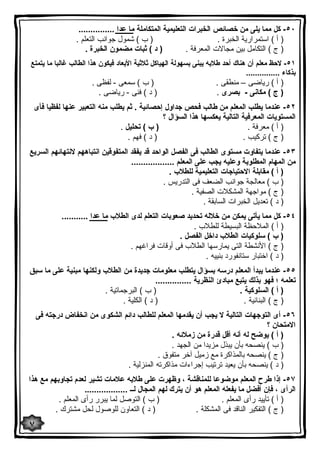 ٥٠- كل مما يلى من خصائص الخبرات التعليمية المتكاملة ما عدا ...............
( أ ) استمرارية الخبرة .
( ب ) شمول جوانب التعلم .
( ج ) التكامل بين مجالات المعرفة .
( د ) ثبات مضمون الخبرة .
٥١- لاحظ معلم أن هناك أحد طلابه يبنى بسهولة الهياكل ثلاثية الأبعاد فيكون هذا الطالب غالباً ما يتمتع
بذكاء ...............
( أ ) رياضى – منطقى .
( ب ) سمعى – لفظى .
( ج ) مكانى - بصرى .
( د ) فنى - رياضى .
٥٢- عندما يطلب المعلم من طالب فحص جداول إحصائية . ثم يطلب منه التعبير عنها لفظياً فأى
المستويات المعرفية التالية يعكسها هذا السؤال ؟
( أ ) معرفة .
( ب ) تحليل .
( ج ) تركيب .
( د ) فهم .
٥٣- عندما يتفاوت مستوى الطلاب فى الفصل الواحد قد يفقد المتفوقين انتباههم لانتهائهم السريع
من المهام المطلوبة وعليه يجب على المعلم ...................
( أ ) مقابلة الاحتياجات التعليمية للطلاب .
( ب ) معالجة جوانب الضعف فى التدريس .
( ج ) مواجهة المشكلات الصفية .
( د ) تعديل الخبرات السابقة .
٥٤- كل مما يأتى يمكن من خلاله تحديد صعوبات التعلم لدى الطلاب ما عدا ...........
( أ ) الملاحظة البسيطة للطلاب .
( ب ) سلوكيات الطلاب داخل الفصل .
( ج ) الأنشطة التى يمارسها الطلاب فى أوقات فراغهم .
( د ) اختبار ستانفورد بنييه .
٥٥- عندما يبدأ المعلم درسه بسؤال يتطلب معلومات جديدة من الطلاب ولكنها مبنية على ما سبق
تعلمه ؛ فهو بذلك يتبع مبادئ النظرية ...............
( أ ) السلوكية .
( ب ) البرجماتية .
( ج ) البنائية .
( د ) الكلية .
٥٦- أى التوجهات التالية لا يجب أن يقدمها المعلم للطالب دائم الشكوى من انخفاض درجته فى
الامتحان ؟
( أ ) يوضح له أنه أقل قدرة من زملائه .
( ب ) ينصحه بأن يبذل مزيداً من الجهد .
( ج ) ينصحه بالمذاكرة مع زميل آخر متفوق .
( د ) ينصحه بأن يعيد ترتيب إجراءات مذاكرته المنزلية .
٥٧- إذا طرح المعلم موضوعاً للمناقشة ، وظهرت على طلابه علامات تشير لعدم تجاوبهم مع هذا
الرأى ، فإن أفضل ما يفعله المعلم هو أن يترك لهم المجال لـــ .................
( أ ) تأييد رأى المعلم .
( ب ) التوصل لما يبرر رأى المعلم .
( ج ) التفكير الناقد فى المشكلة .
( د ) التعاون للوصول لحل مشترك .
٧